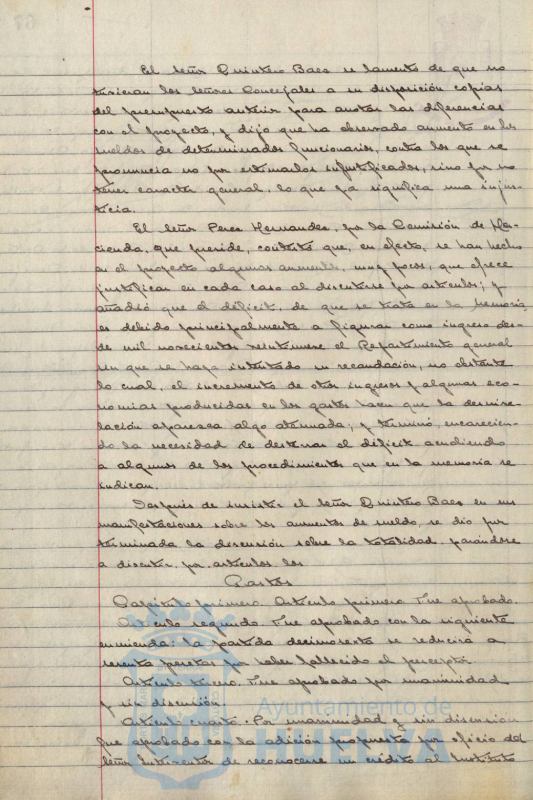 El Señor Quintero Baez se lamentó de que no
tuvieran los Señores Concejales a su disposición copias
del presupuesto anterior para anotar las diferencias
con el proyecto, y dijo que ha observado aumento en los
sueldos de determinados funcionarios, contra los que se
pronuncia no por estimarlos injustificados, sino por no
tener caracter general, lo que ya significa una injus-
ticia.
El Señor Perez Hernandez, por la Comisión de Ha-
cienda, que preside, contestó que, en efecto, se han hecho
en el proyecto algunos aumentos, muy pocos, que ofrece
justificar en cada caso al discutirse por articulos; y
añadió que el déficit, de que se trata en la Memoria,
es debido principalmente a figurar como ingreso des-
de mil novecientos veintinueve el Repartimiento general
sin que se haya intentado su recaudación, no obstante
lo cual, el incremento de otros ingresos y algunas eco-
nomias producidas en los gastos hacen que la desnive-
lación aparezca algo atenuada; y terminó encarecien-
do la necesidad de desterrar el déficit acudiendo
a algunos de los procedimientos que en la memoria se
indican.
Después de insistir el Señor Quintero Baez en sus
manifestaciones sobre los aumentos de sueldo, se dió por
terminada la discusión sobre la totalidad, pasándose
a discutir, por artículos los
Gastos
Capítulo primero. Artículo primero. Fue aprobado.
Artículo segundo. Fue aprobado con la siguiente
enmienda: la partida decimosexta se reducirá a
sesenta pesetas por haber fallecido el perceptor.
Artículo tercero. Fue aprobado por unanimidad
y sin discusión.
Artículo cuarto. Por unanimidad y sin discusión
fue aprobado con la adición propuesta por oficio del
Señor Interventor de reconocerse un crédito al Instituto
Ayuntamiento de
HUELVA